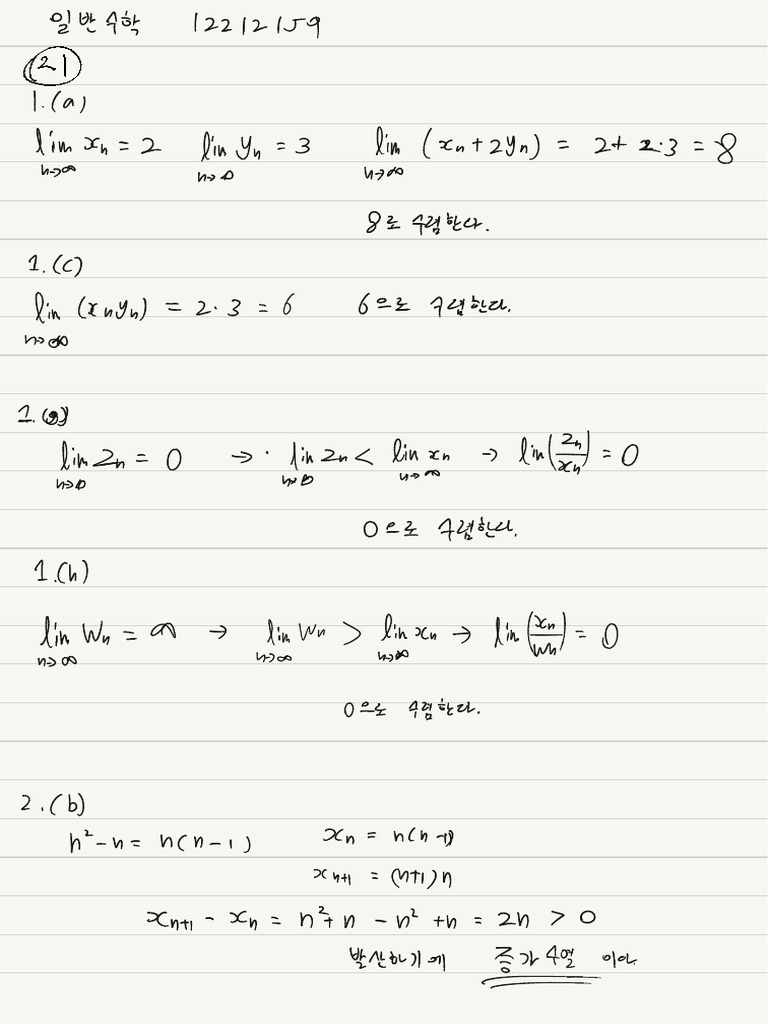 일반수학 12212159
21
1.(a)
lim n→∞ xn = 2 lim n→∞ yn = 3 lim n→∞ (xn + 2yn) = 2 + 2·3 = 8
8로 수렴한다.
1.(c)
lim n→∞ (xnyn) = 2·3 = 6 6으로 수렴한다.
1.(g)
lim n→∞ zn = 0 → · lim n→∞ zn < lim n→∞ xn → lim(zn/xn) = 0
0으로 수렴한다.
1.(h)
lim n→∞ wn = ∞ → lim n→∞ wn > lim n→∞ xn → lim(xn/wn) = 0
0으로 수렴한다.
2.(b)
n²-n = n(n-1) xn = n(n-1)
xn+1 = (n+1)n
xn+1 - xn = n²+n - n² +n = 2n > 0
발산하기에 증가수열 이다